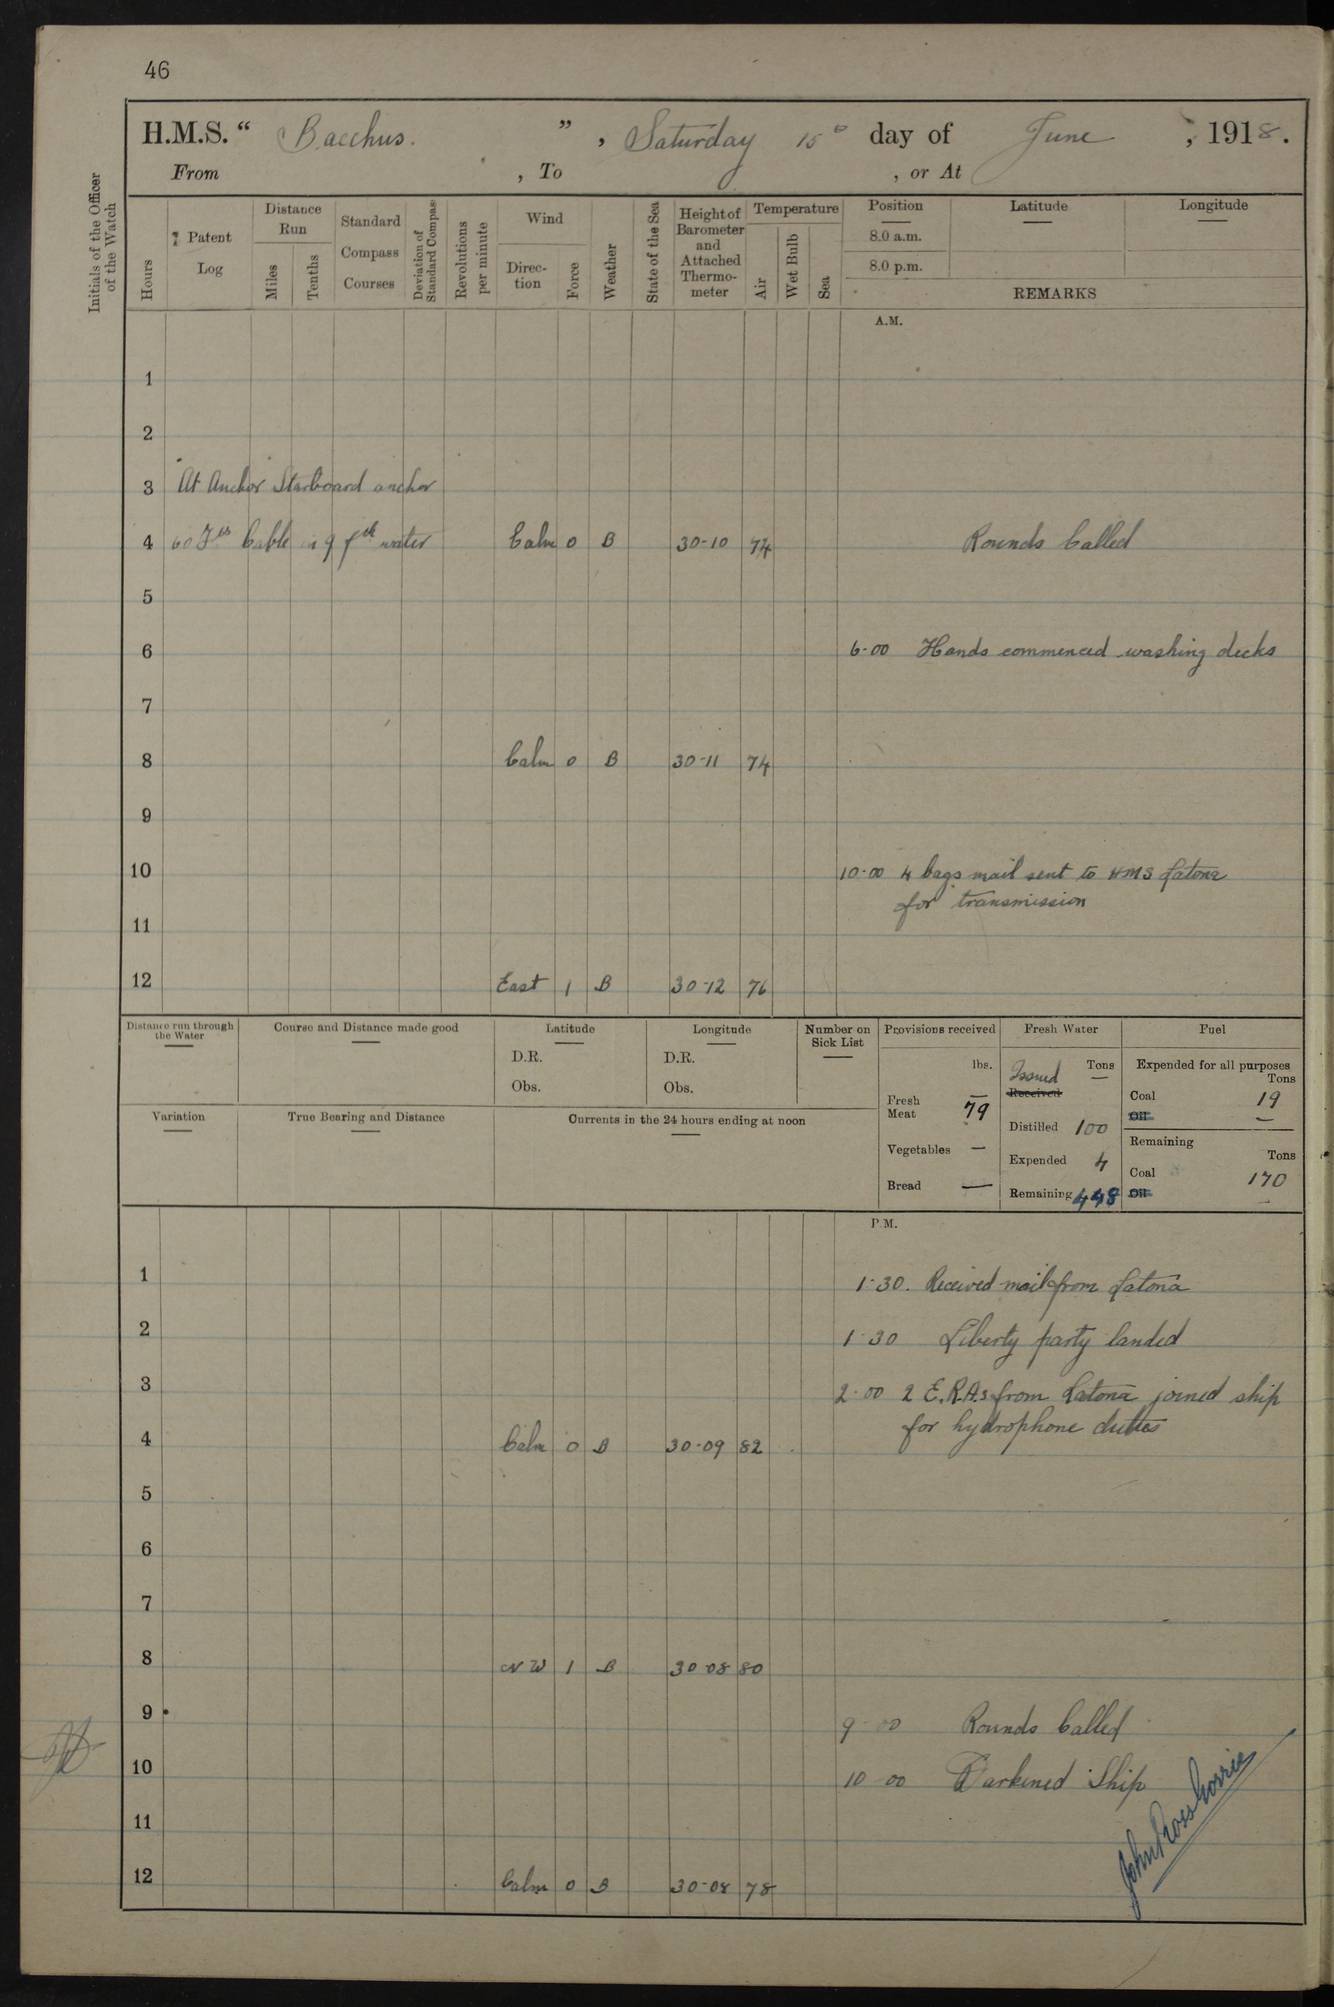 46
H.M.S. “ Bacchus. ” , Saturday 15th day of June , 1918.
From , To , or At
Initials of the Officer of the Watch
Hours
Patent Log
Distance Run
Miles
Tenths
Standard Compass Courses
Deviation of Standard Compass
Revolutions per minute
Wind
Direction
Force
Weather
State of the Sea
Height of Barometer and Attached Thermometer
Temperature
Air
Wet Bulb
Sea
Position Latitude Longitude
8.0 a.m.
8.0 p.m.
REMARKS
A.M.
1
2
3 At Anchor Starboard anchor
4 60 Fms Cable in 9 fth water Calm 0 B 30-10 74 Rounds Called
5
6 6-00 Hands commenced washing decks
7
8 Calm 0 B 30-11 74
9
10 10-00 4 bags mail sent to HMS Latona
for transmission
11
12 East 1 B 30-12 76
Distance run through the Water
Course and Distance made good
Latitude
D.R.
Obs.
Longitude
D.R.
Obs.
Number on Sick List
Provisions received
lbs.
Fresh Meat 79
Vegetables —
Bread —
Fresh Water
Tons
Issued —
Received
Distilled 100
Expended 4
Remaining 448
Fuel
Expended for all purposes
Tons
Coal 19
Oil —
Remaining
Tons
Coal 170
Oil —
Variation
True Bearing and Distance
Currents in the 24 hours ending at noon
P.M.
1 1-30. Received mail from Latona
2 1-30 Liberty party landed
3 2-00 2 E.R.As from Latona joined ship
for hydrophone duties
4 Calm 0 B 30-09 82
5
6
7
8 NW 1 B 30-08 80
9 9-00 Rounds Called
10 10-00 Darkened Ship
11
12 Calm 0 B 30-08 78
John Ross Gorrie